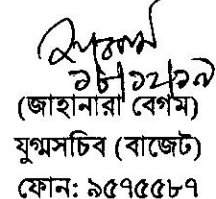 ১৮/১২/১৯
(জাহানারা বেগম)
যুগ্মসচিব (বাজেট)
ফোন: ৯৫৭৫৫৮৭